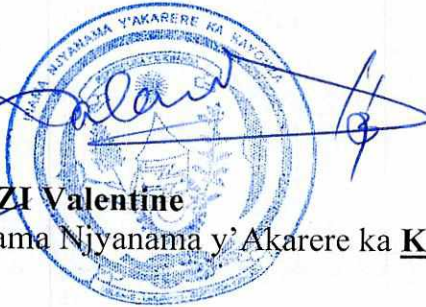 NAMA NJYANAMA Y'AKARERE KA KAYONZA
ZI Valentine
ama Njyanama y'Akarere ka K